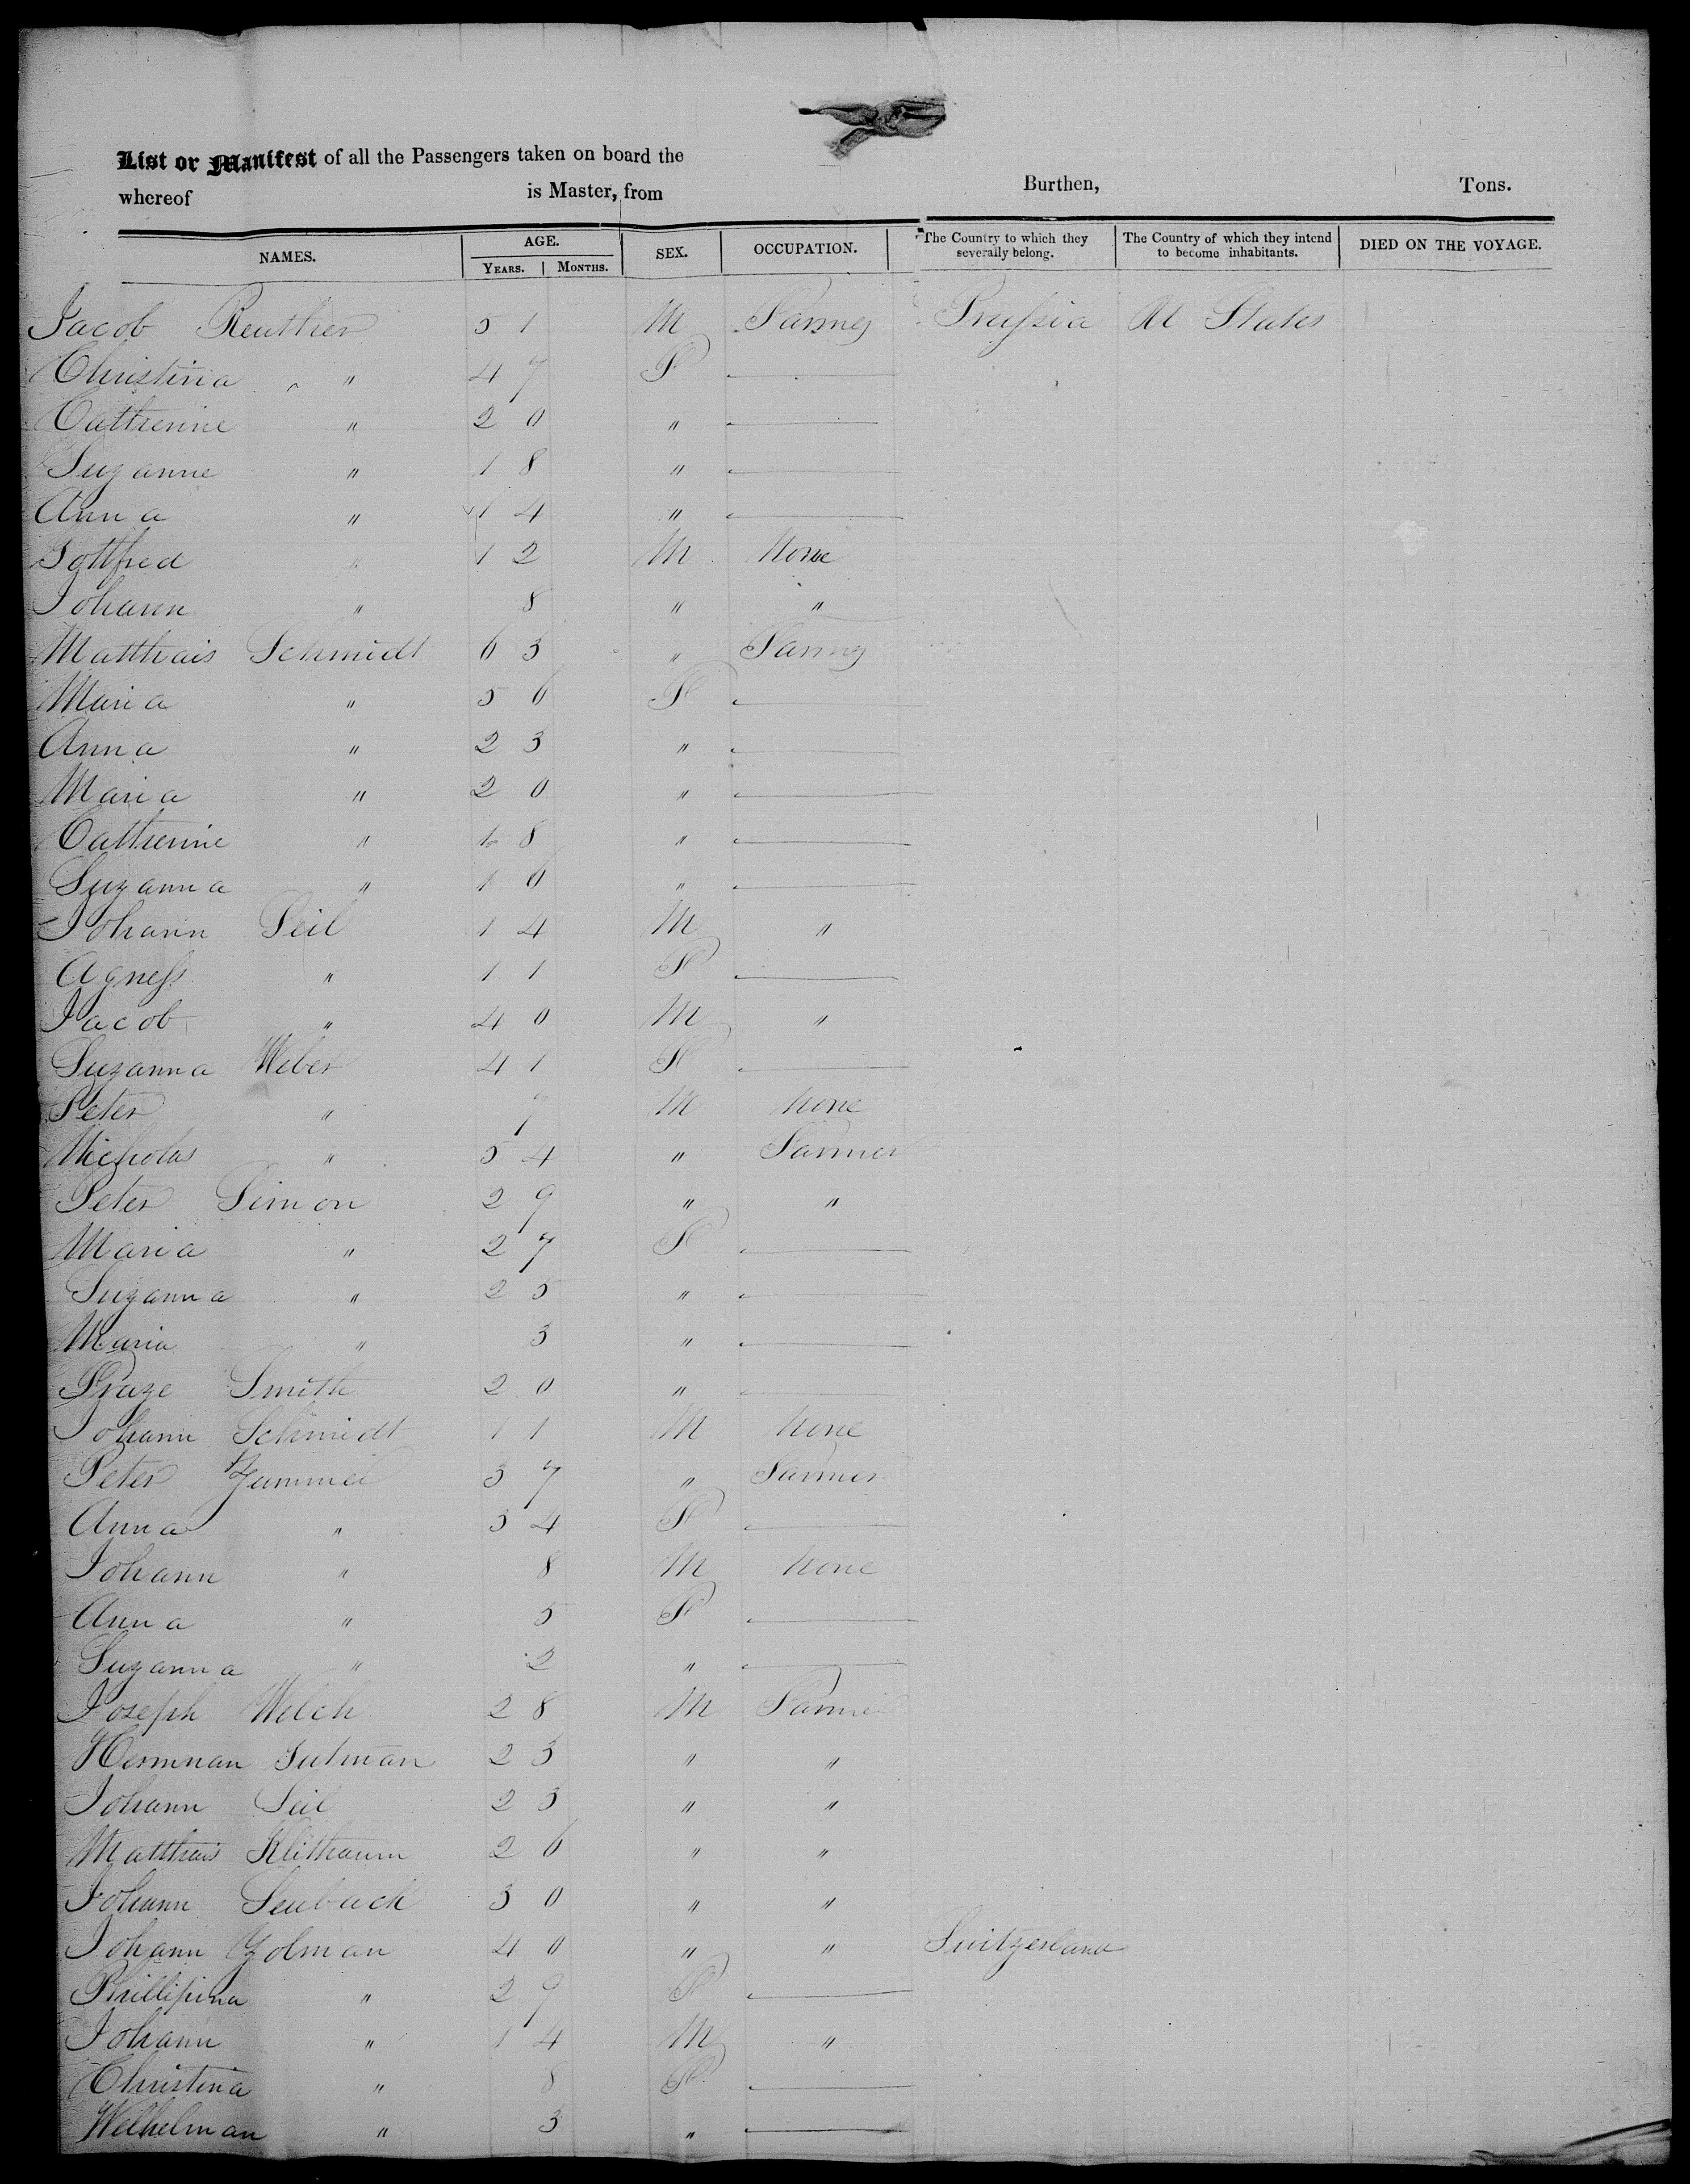 List or Manifest of all the Passengers taken on board the
whereof is Master, from Burthen, Tons.
NAMES. AGE. YEARS. MONTHS. SEX. OCCUPATION. The Country to which they severally belong. The Country of which they intend to become inhabitants. DIED ON THE VOYAGE.
Jacob Reuther 51 M Farmer Prussia U States
Christina " 47 F
Cathrenine " 20 "
Suzanne " 18 "
Anna " 14 "
Gottfred " 12 M None
Johann " 8 " "
Matthais Schmidt 63 " Farmer
Maria " 56 F
Anna " 23 "
Maria " 20 "
Cathrenine " 18 "
Suzanna " 16 "
Johann Seil 14 M "
Agness " 11 F
Jacob " 40 M "
Suzanna Weber 41 F
Peter " 7 M None
Nicholas " 54 " Farmer
Peter Simon 29 " "
Maria " 27 F
Suzanna " 25 "
Maria " 3 "
Smith 20 "
Johann Schmidt 11 M None
Peter 37 " Farmer
Anna " 34 F
Johann " 8 M None
Anna " 5 F
Suzanna " 2 "
Joseph Welch 28 M Farmer
Hermnan Sutman 23 " "
Johann Seil 23 " "
Matthais 26 " "
Johann Seuback 30 " "
Johann Zolman 40 " " Switzerland
Phillipina " 29 F
Johann " 14 M "
Christina " 8 F
Welhelman " 3 "